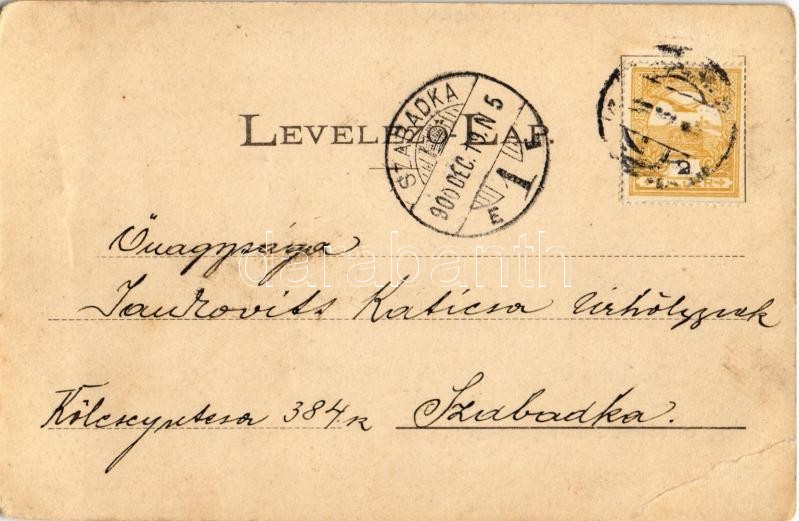 LEVELEZŐ-LAP.
SZABADKA
900 DEC. 19. N 5
E 1
2
Őnagysága
Jankovits Katicza Úrhölgynek
Kölcseyutcza 384
Szabadka.
darabanth